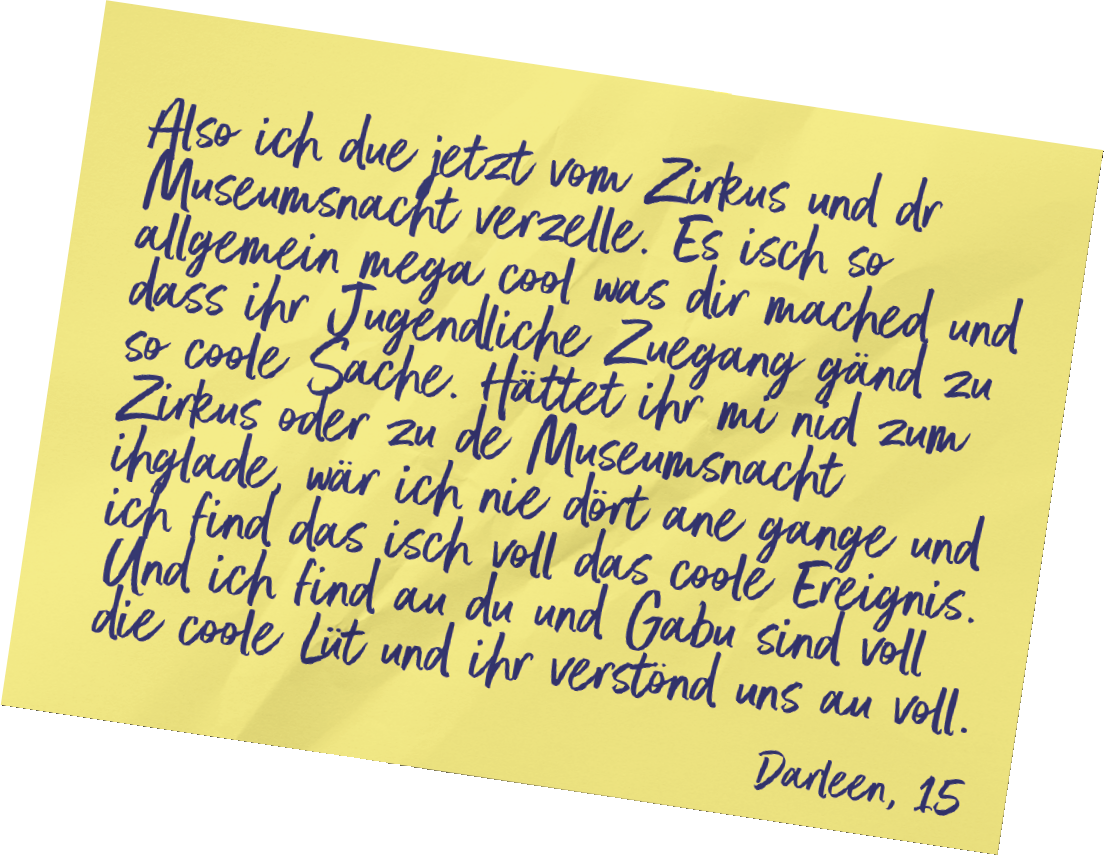 Also ich due jetzt vom Zirkus und dr
Museumsnacht verzelle. Es isch so
allgemein mega cool was dir mached und
dass ihr Jugendliche Zuegang gänd zu
so coole Sache. Hättet ihr mi nid zum
Zirkus oder zu de Museumsnacht
ihglade, wär ich nie dört ane gange und
ich find das isch voll das coole Ereignis.
Und ich find au du und Gabu sind voll
die coole Lüt und ihr verstönd uns au voll.
Darleen, 15